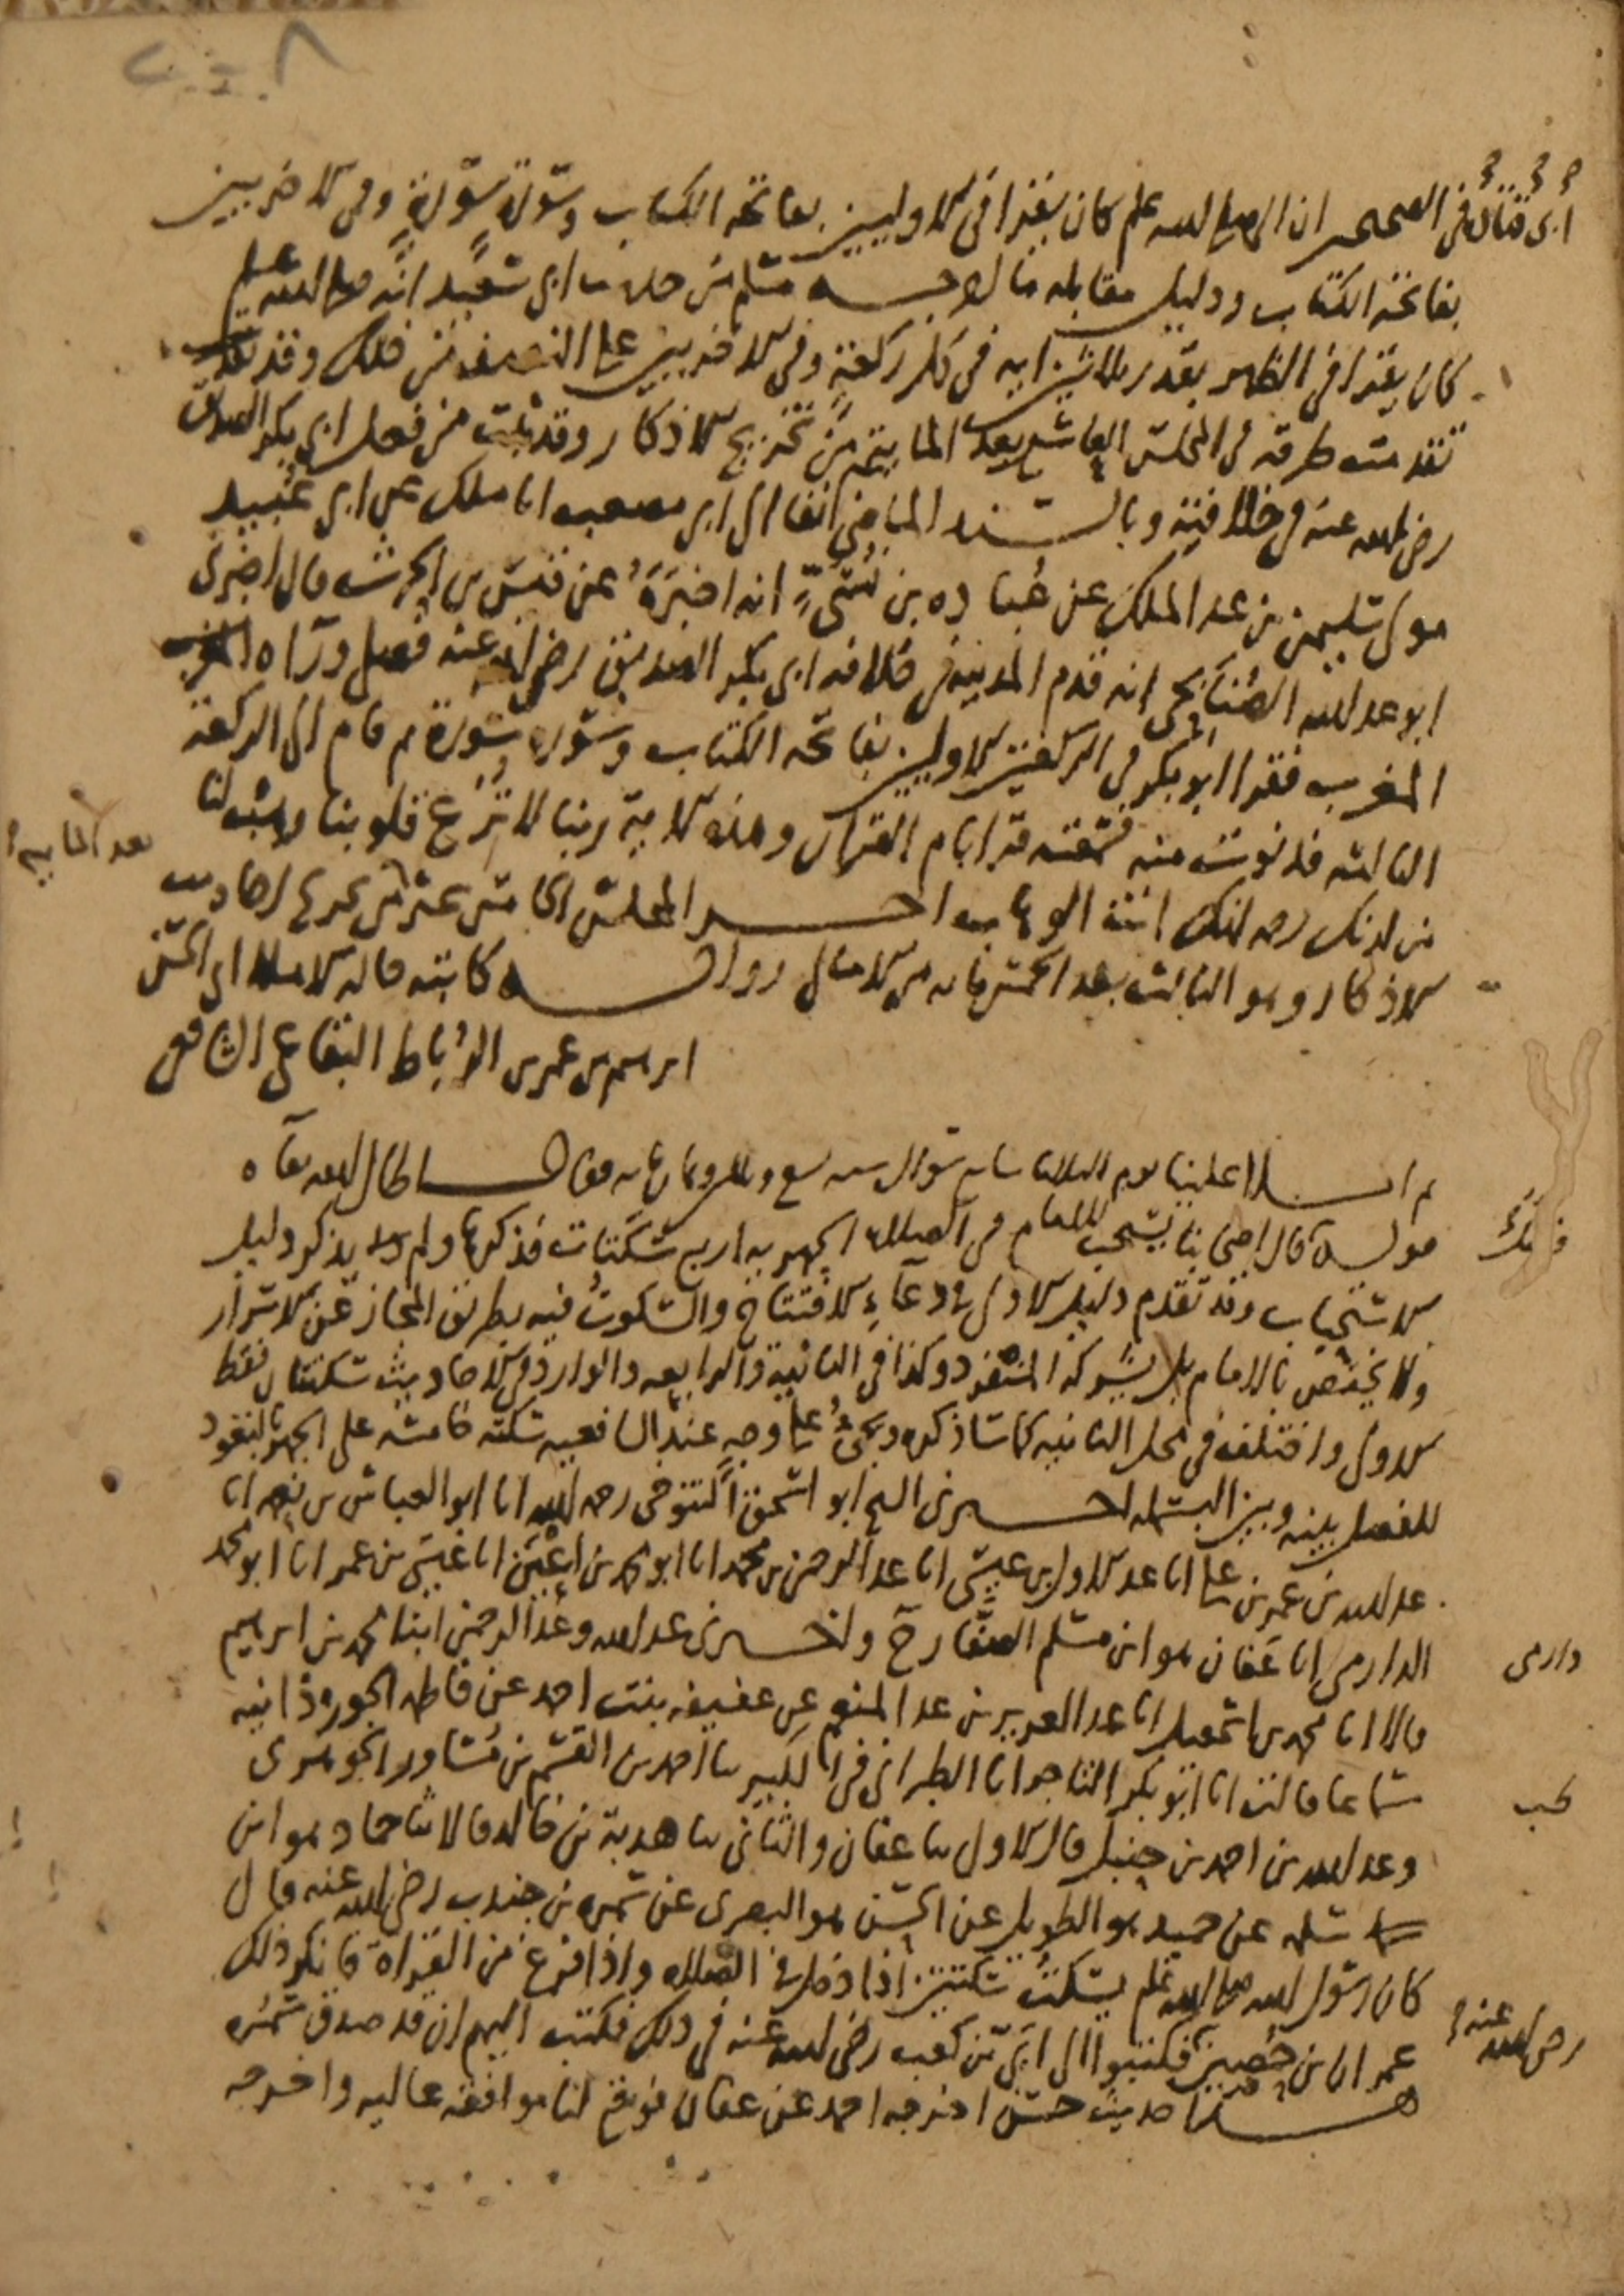 ٢٠٨
ابى قتادة فى الصحيحين ان النبى صلى الله عليه وسلم كان يقرا فى الاوليين بفاتحة الكتاب وسورة سورة وفى الاخريين
بفاتحة الكتاب ودليل مقابله ما اخرجه مسلم من حديث ابى سعيد انه صلى الله عليه وسلم
كان يقرا فى الظهر بقدر ثلاثين اية فى كل ركعة وفى الاخريين على النصف من ذلك وقد
تقدمت طرقه فى المجلس التاسع بعد المايتين من تخريج الاذكار وقد ثبت من فعل ابى بكر الصديق
رضى الله عنه فى خلافته وبالسند الماضى انفا الى ابى مصعب انا ملك عن ابى عبيد
مولى سليمن بن عبد الملك عن عبادة بن نسى انه اخبره عن قيس بن الحرث قال اخبرنى
ابو عبد الله الصنابحى انه قدم المدينة فى خلافة ابى بكر الصديق رضى الله عنه فصلى وراه المغرب
المغرب فقرا ابو بكر فى الركعتين الاوليين بفاتحة الكتاب وسورة سورة ثم قام الى الركعة
الثالثة فدنوت منه فسمعته قرا بام القران وهذه الاية ربنا لا تزغ قلوبنا وهب لنا
من لدنك رحمة انك انت الوهاب اخر المجلس الخامس عشر من تخريج احاديث
بعد المايه
الاذكار وهو الثالث بعد الخمسمايه من الامالى رواية كاتبه قاله الاملا ابى الحسن
ابرهيم بن عمر بن الرباط البقاعى الشافعى
ثم املا علينا يوم الثلاثا سابع شوال سنه سبع وثلثين وثمانمايه فقال اطال الله بقاه
قوله قال اصحابنا يستحب للامام فى الصلاة الجهريه اربع سكتات فذكرها ولم يذكر دليل
الاستحباب وقد تقدم دليل الاول فى دعاء الافتتاح والسكوت فيه بطريق المجاز عن الاسرار
ولا يختص بالامام بل يشركه المنفرد وكذا فى الثانية والرابعه والوارد فى الاحاديث سكتتان فقط
الاولى واختلف فى محل الثانيه كما ساذكره ويجئ على وجه عند الشافعيه سكتة خامسه على الجهر بالتعوذ
للفصل بينه وبين البسمله اخبرنى الشيخ ابو اسحق التنوخى رحمه الله انا ابو العباس بن نعمه انا
عبد الله بن عمر بن على انا عبد الاول بن عيسى انا عبد الرحمن بن محمد انا ابو محمد بن اعين انا عيسى بن عمر انا ابو محمد
الدارمى انا عفان هو ابن مسلم الصفار ح واخبرنى عبد الله وعبد الرحمن ابنا محمد بن ابرهيم
دارمى
قالا انا محمد بن اسمعيل انا عبد العزيز بن عبد المنعم عن عفيفه بنت احمد عن فاطمة الجوزذانيه
سماعا قالت انا ابو بكر التاجر انا الطبرانى فى الكبير نا احمد بن القسم بن مساور الجوهرى
وعبد الله بن احمد بن حنبل قال الاول نا عفان والثانى نا هدبة بن خالد قالا ثنا حماد هو ابن
سلمه عن حميد هو الطويل عن الحسن هو البصرى عن سمره بن جندب رضى الله عنه قال
كان رسول الله صلى الله عليه وسلم يسكت سكتتين اذا دخل فى الصلاه واذا فرغ من القراة فانكر ذلك
عمران بن حصين فكتبوا الى ابى بن كعب رضى الله عنه فى ذلك فكتب اليهم ان قد صدق سمره
رضى الله عنه
هذا حديث حسن اخرجه احمد عن عفان فوقع لنا موافقه عاليه واخرجه